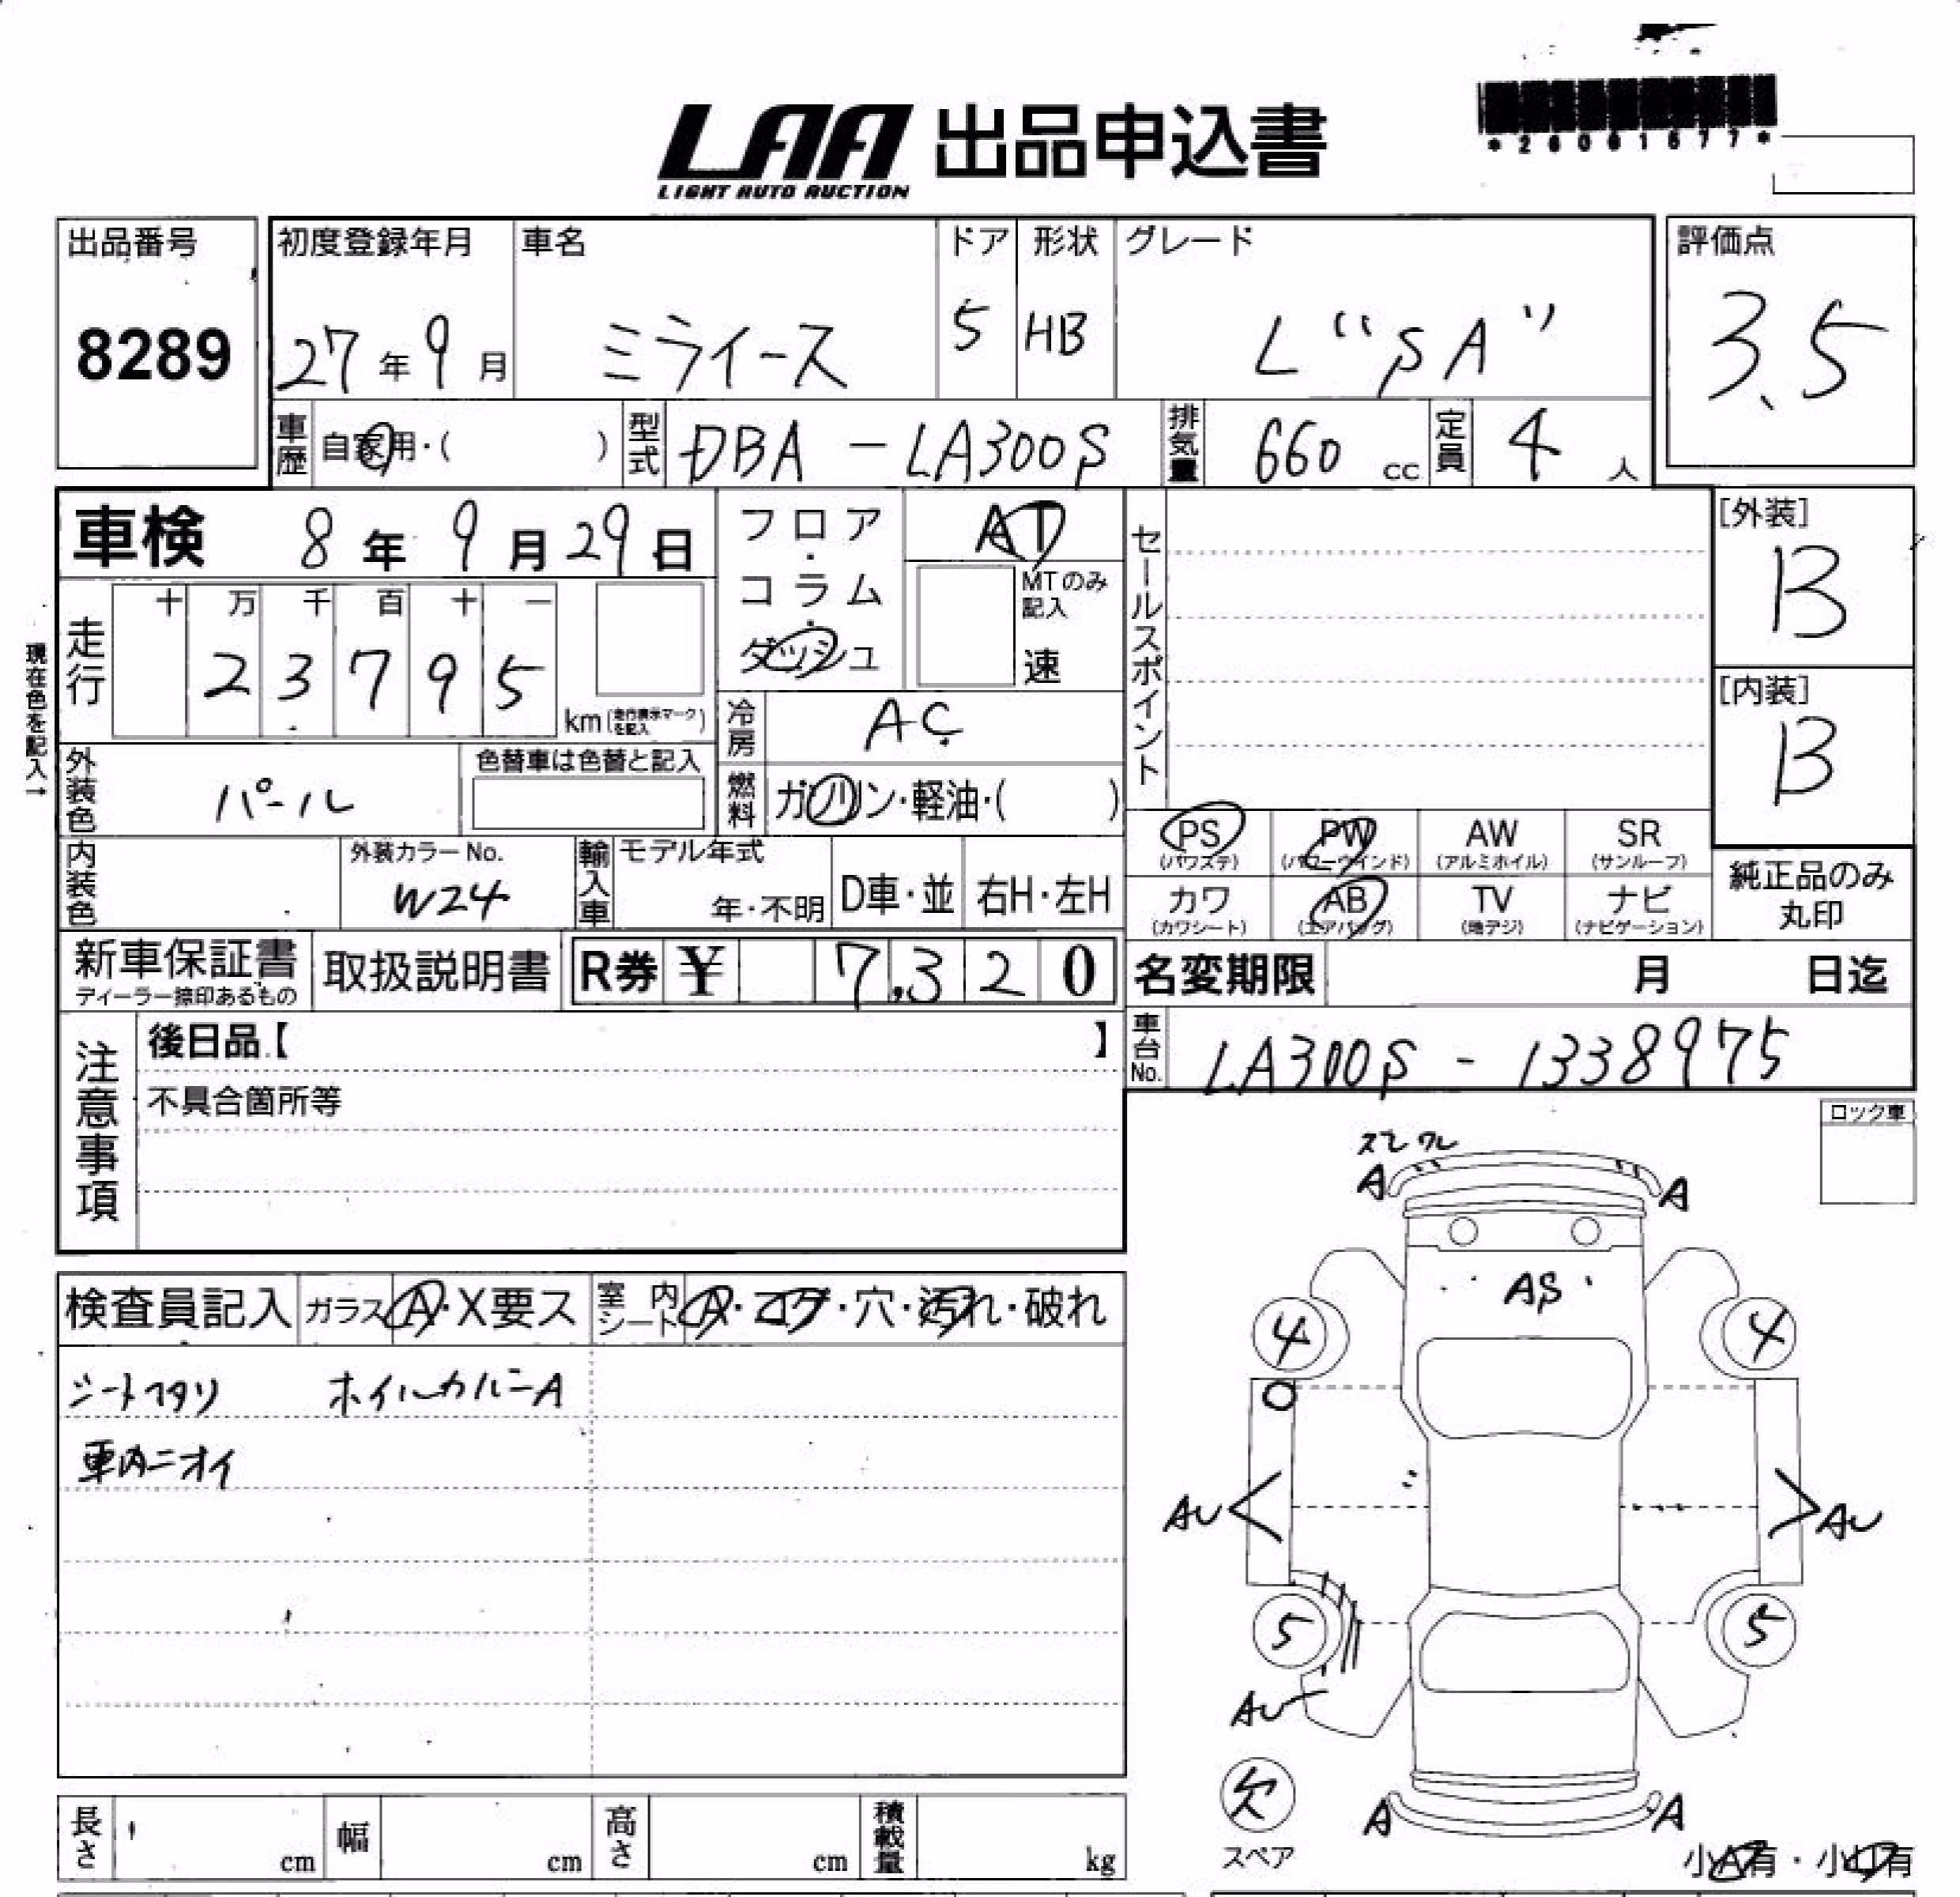 LAA 出品申込書
LIGHT AUTO AUCTION
*26061677*
出品番号
8289
初度登録年月
27年9月
車名
ミライース
ドア
5
形状
HB
グレード
L“SA”
評価点
3.5
車歴 自家用・( )
型式 DBA-LA300S
排気量 660 cc
定員 4人
車検 8年9月29日
フロア・コラム・ダッシュ
AT
MTのみ記入
速
セールスポイント
[外装]
B
[内装]
B
現在色を記入→
走行
十 万 千 百 十 一
2 3 7 9 5
km(走行表示マークを記入)
冷房 AC
外装色 パール
色替車は色替と記入
燃料 ガソリン・軽油・( )
PS (パワステ)
PW (パワーウインド)
AW (アルミホイル)
SR (サンルーフ)
内装色
外装カラーNo.
W24
輸入車
モデル年式
年・不明
D車・並
右H・左H
カワ (カワシート)
AB (エアバッグ)
TV (地デジ)
ナビ (ナビゲーション)
純正品のみ
丸印
新車保証書
ディーラー捺印あるもの
取扱説明書
R券 ¥ 7,320
名変期限 月 日迄
車台No. LA300S-1338975
注意事項
後日品【 】
不具合箇所等
ロック車
スレ ワレ
A A
AS
4 4
AU AU
5 5
AU
欠
スペア
A A
小A有・小U有
検査員記入
ガラス A・X要ス
室内シート A・コゲ・穴・汚れ・破れ
シートヘタリ ホイルカバーA
車内ニオイ
長さ cm
幅 cm
高さ cm
積載量 kg